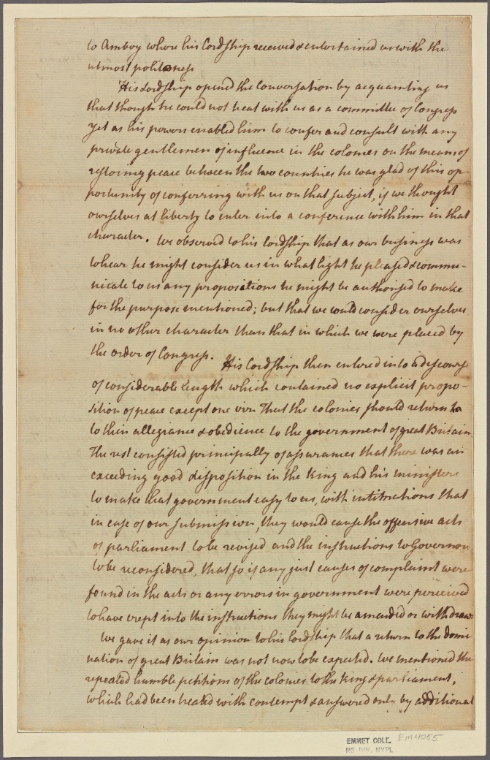 to Amboy where his Lordship received & entertained us with the
utmost politeness
His Lordship opend the Conversation by acquainting us
that though he could not treat with us as a committee of Congress
yet as his powers enabled him to confer and consult with any
private gentlemen of influence in the colonies on the means of
restoring peace between the two countries he was glad of this op-
portunity of conferring with us on that subject, if we thought
ourselves at liberty to enter into a conference with him in that
character. We observed to his lordship that as our business was
to hear he might consider us in what light he pleased & commu-
nicate to us any propositions he might be authorised to make
for the purpose mentioned; but that we could consider ourselves
in no other character than that in which we were placed by
the order of Congress.
His lordship then entered into a discourse
of considerable length which contained no explicit propo-
sition of peace except one viz. That the colonies should return to
to their allegiance & obedience to the government of great Britain
The rest consisted principally of assurances that there was an
exceeding good disposition in the King and his ministers
to make that government easy to us, with intimations that
in case of our submission they would cause the offensive acts
of parliament to be revised and the instructions to Governors
to be reconsidered, that so if any just causes of complaint were
found in the acts or any errors in government were perceived
to have crept into the instructions they might be amended or withdrawn
We gave it as our opinion to his lordship that a return to the domi-
nation of great Britain was not now to be expected. We mentioned the
repeated humble petitions of the colonies to the King & parliament,
which had been treated with contempt & answered only by additional
EMMET COLL.
MS. DIV. NYPL